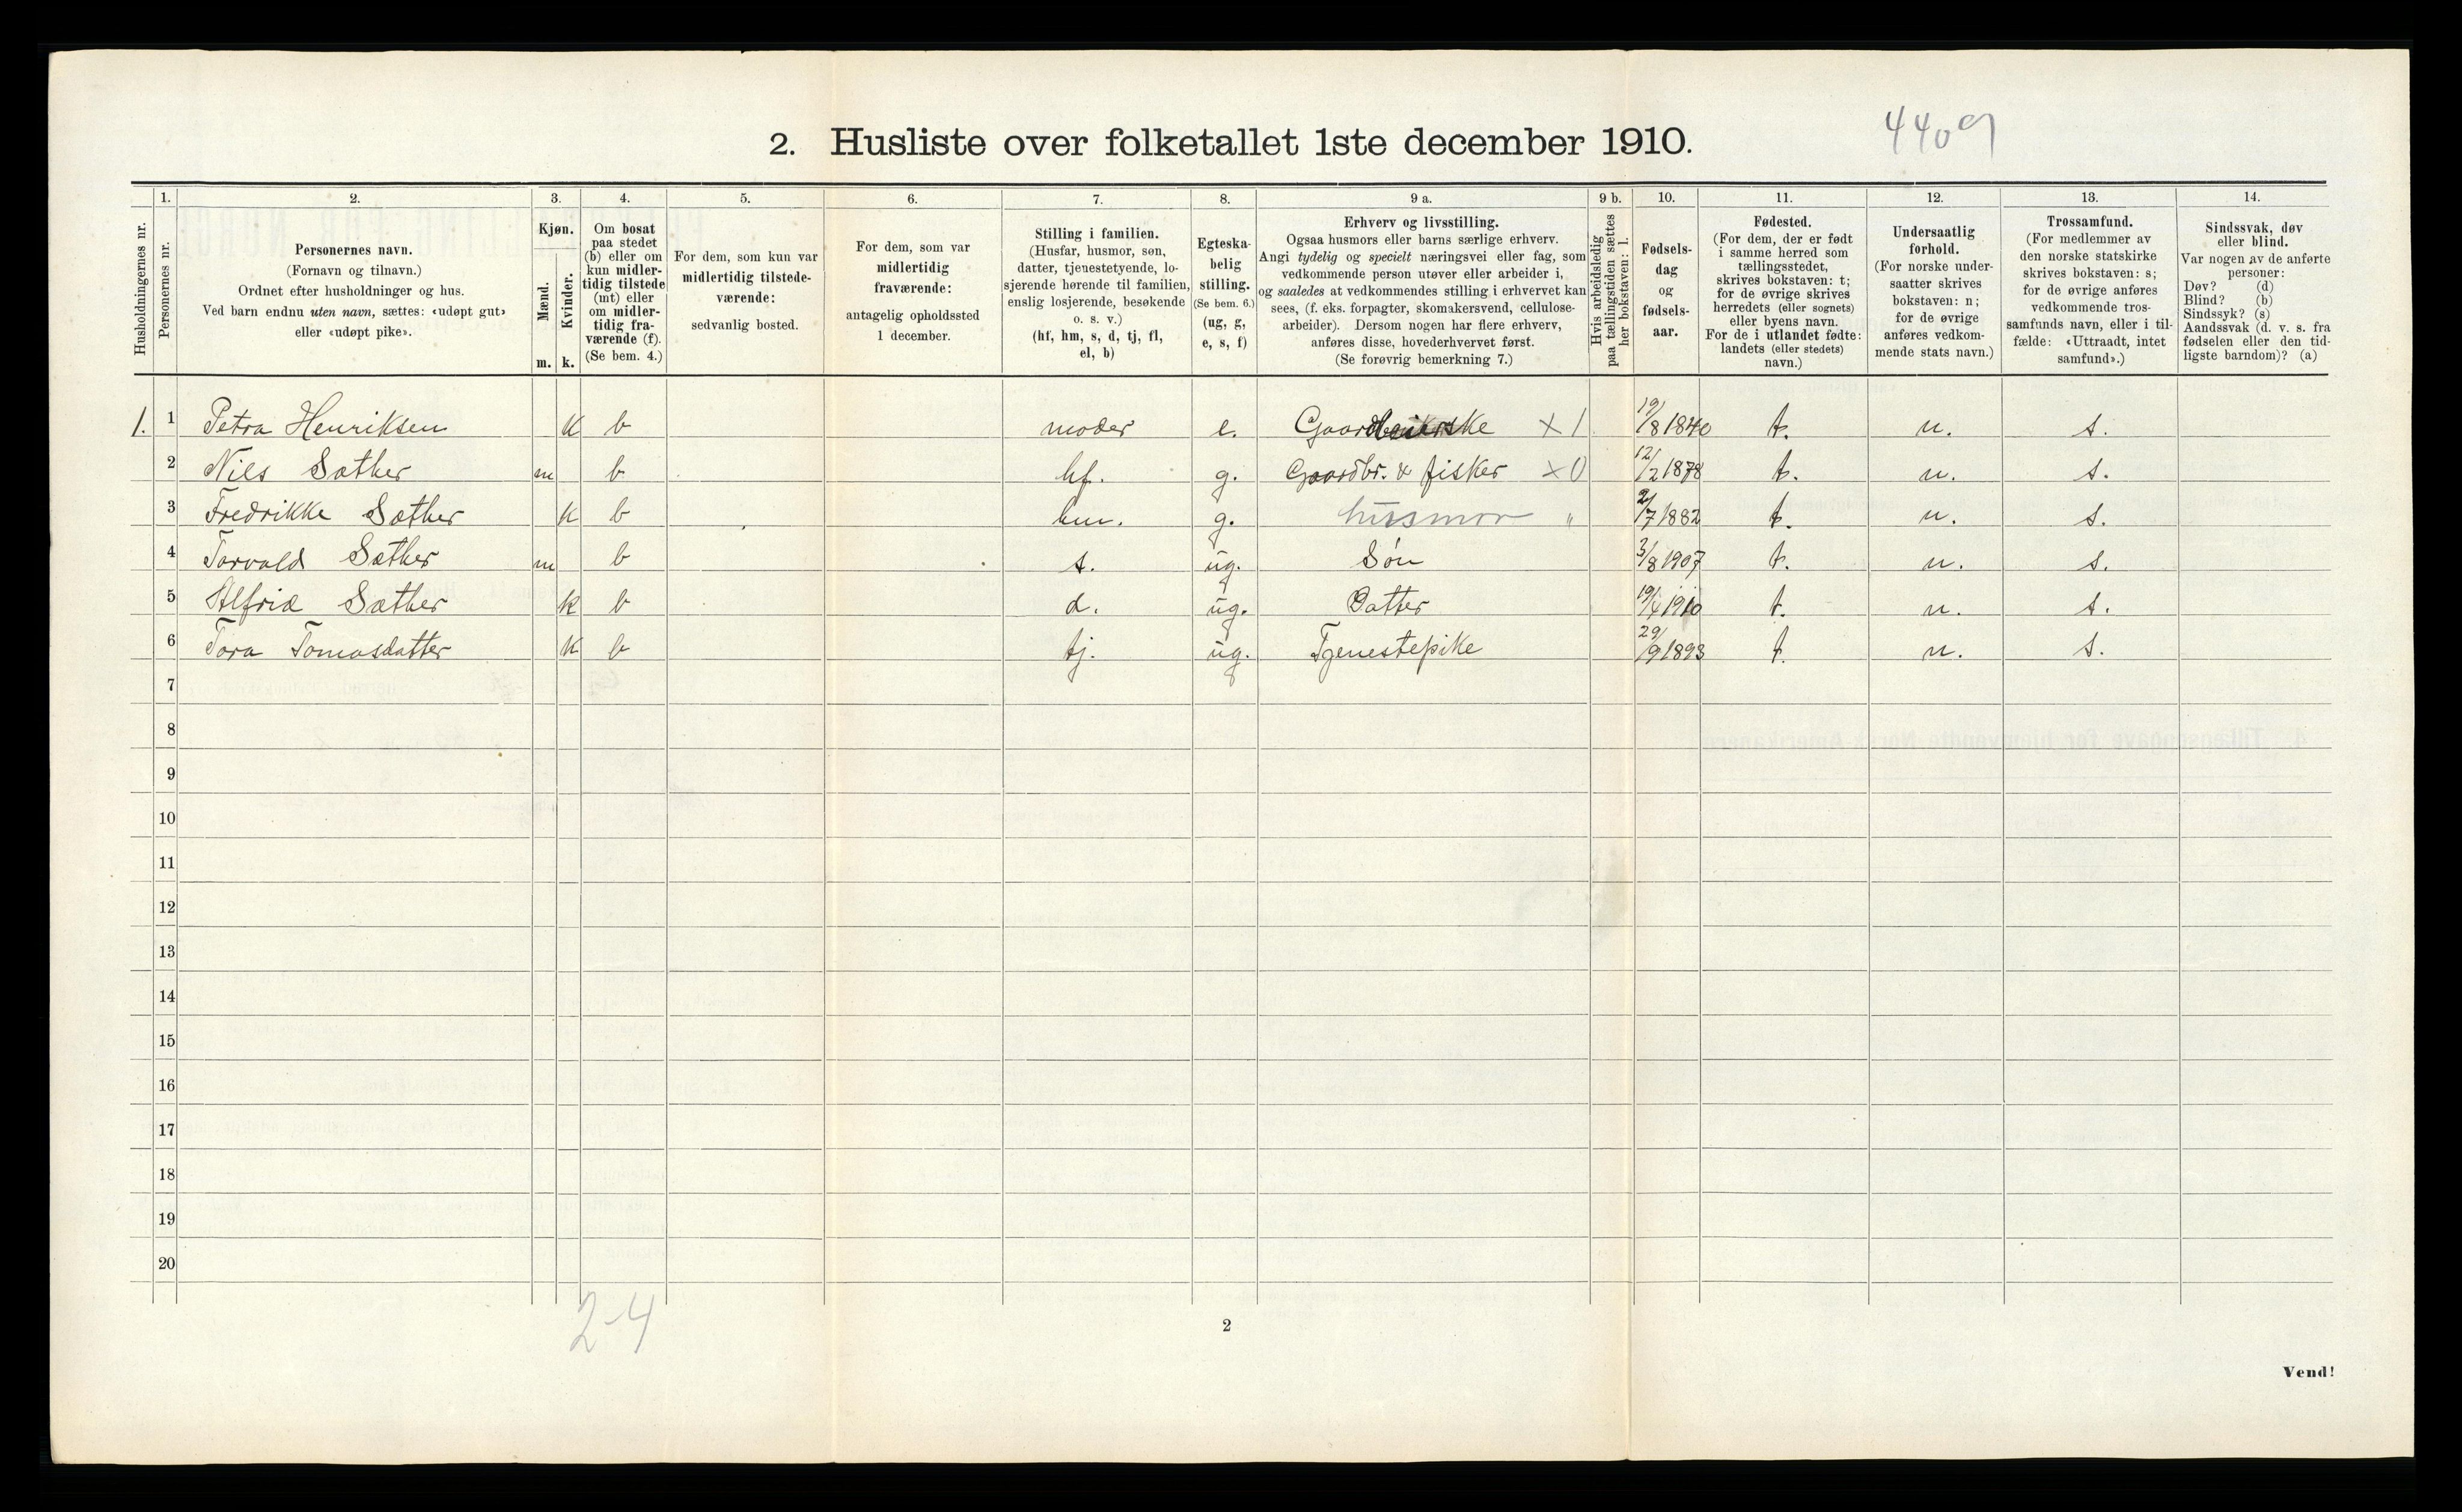 4409
2. Husliste over folketallet 1ste december 1910.
Husholdningernes nr.
1. Personernes nr.
2. Personernes navn.
(Fornavn og tilnavn.)
Ordnet efter husholdninger og hus.
Ved barn endnu uten navn, sættes: «udøpt gut»
eller «udøpt pike».
3. Kjøn.
Mænd. m.
Kvinder. k.
4. Om bosat
paa stedet
(b) eller om
kun midler-
tidig tilstede
(mt) eller
om midler-
tidig fra-
værende (f).
(Se bem. 4.)
5. For dem, som kun var
midlertidig tilstede-
værende:
sedvanlig bosted.
6. For dem, som var
midlertidig
fraværende:
antagelig opholdssted
1 december.
7. Stilling i familien.
(Husfar, husmor, søn,
datter, tjenestetyende, lo-
sjerende hørende til familien,
enslig losjerende, besøkende
o. s. v.)
(hf, hm, s, d, tj, fl,
el, b)
8. Egteska-
belig
stilling.
(Se bem. 6.)
(ug, g,
e, s, f)
9 a. Erhverv og livsstilling.
Ogsaa husmors eller barns særlige erhverv.
Angi tydelig og specielt næringsvei eller fag, som
vedkommende person utøver eller arbeider i,
og saaledes at vedkommendes stilling i erhvervet kan
sees, (f. eks. forpagter, skomakersvend, cellulose-
arbeider). Dersom nogen har flere erhverv,
anføres disse, hovederhvervet først.
(Se forøvrig bemerkning 7.)
9 b. Hvis arbeidsledig
paa tællingstiden sættes
her bokstaven: l.
10. Fødsels-
dag
og
fødsels-
aar.
11. Fødested.
(For dem, der er født
i samme herred som
tællingsstedet,
skrives bokstaven: t;
for de øvrige skrives
herredets (eller sognets)
eller byens navn.
For de i utlandet fødte:
landets (eller stedets)
navn.)
12. Undersaatlig
forhold.
(For norske under-
saatter skrives
bokstaven: n;
for de øvrige
anføres vedkom-
mende stats navn.)
13. Trossamfund.
(For medlemmer av
den norske statskirke
skrives bokstaven: s;
for de øvrige anføres
vedkommende tros-
samfunds navn, eller i til-
fælde: «Uttraadt, intet
samfund».)
14. Sindssvak, døv
eller blind.
Var nogen av de anførte
personer:
Døv? (d)
Blind? (b)
Sindssyk? (s)
Aandssvak (d. v. s. fra
fødselen eller den tid-
ligste barndom)? (a)
1. 1 Petra Henriksen k b moder e. X 1 19/8 1840 t. n. s.
2 Nils Sæther m b hf. g. Gaardbr. & fisker X 0 12/2 1878 t. n. s.
3 Fredrikke Sæther k b hm. g. husmor " 2/7 1882 t. n. s.
4 Torvald Sæther m b s. ug. Søn 3/8 1907 t. n. s.
5 Alfrid Sæther k b d. ug. Datter 19/4 1910 t. n. s.
6 Tora Tomasdatter k b tj. ug. Tjenestepike 29/9 1893 t. n. s.
7
8
9
10
11
12
13
14
15
16
17
18
19
20
2-4
2
Vend!